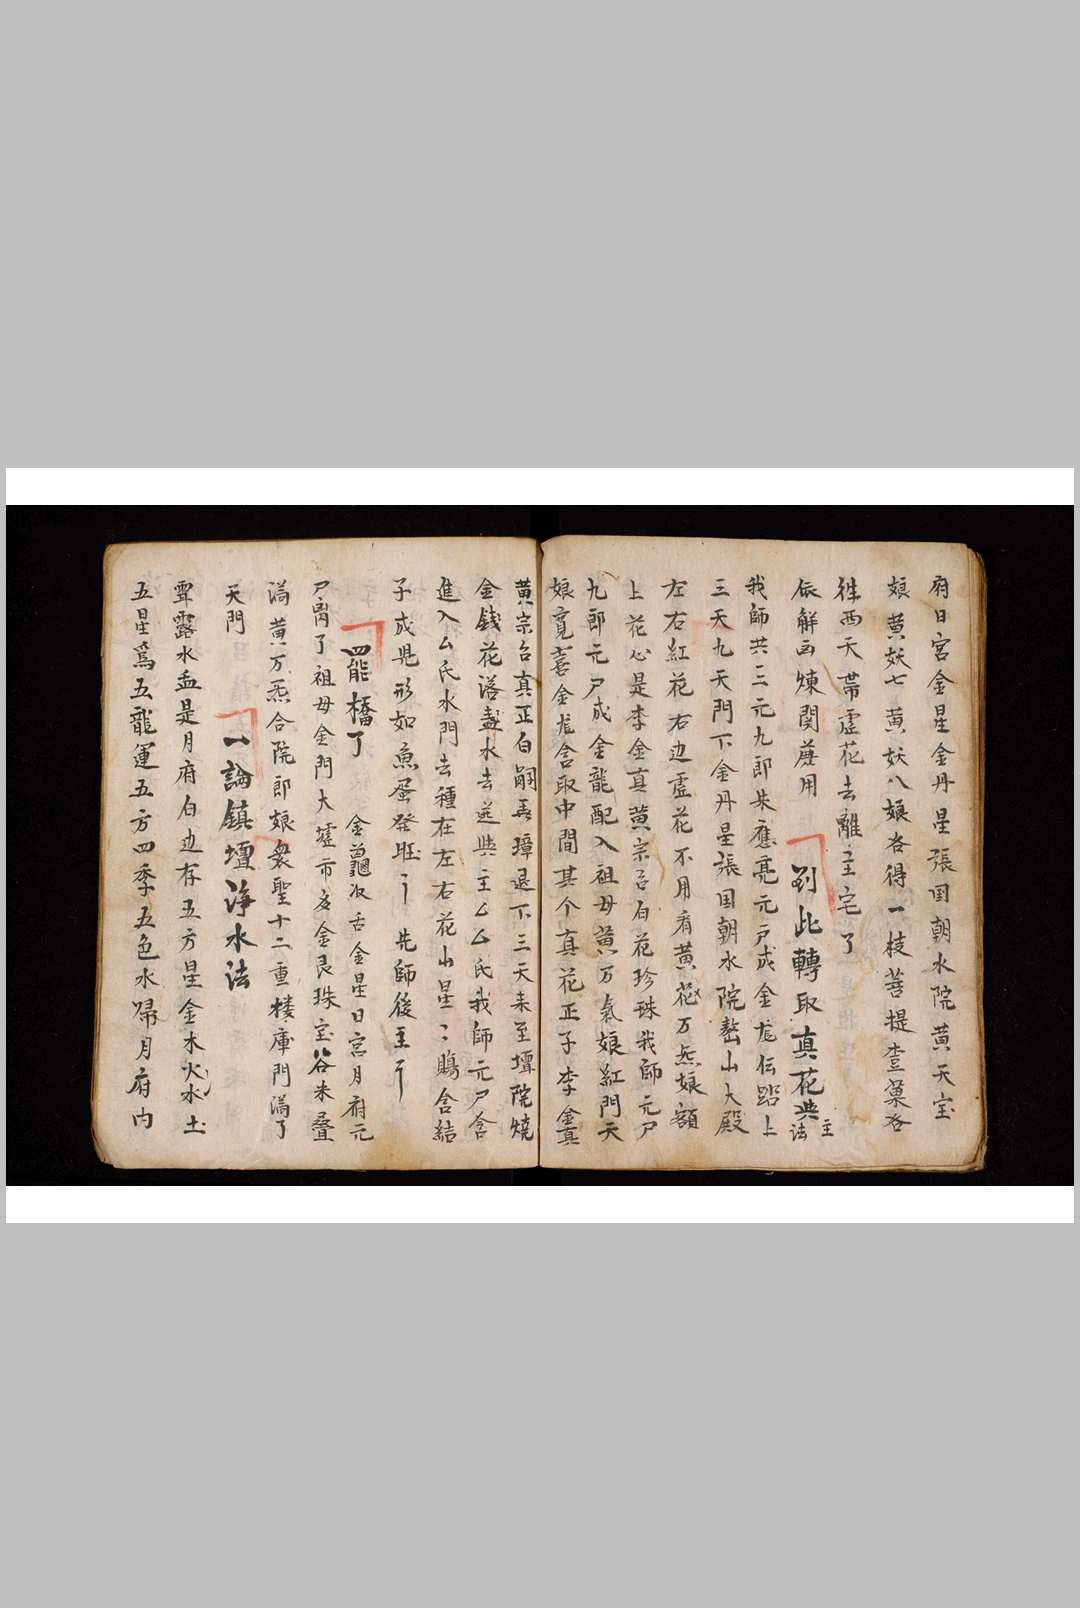 府日宮金星金丹星張国朝水院黄天宝
娘黄妖七黄妖八娘各得一枝菩提查菓各
徃西天帶虚花去離主宅了
依解㐫煉関毎用 到此轉取真花與主法
我師共三元九郎朱應亮元尸成金龙伝蹈上
三天九天門下金丹星張国朝水院嶅山大殿
左右紅花右边虚花不用看黄花万炁娘額
上花心是李金真黄宗召白花珍珠我師元尸
九郎元尸成金龍配入祖母黄万氣娘紅門天
娘寛喜金龙含取中間其个真花正子李金真
黄宗台真正白嗣長璋退下三天来至壇院燒
金銭花落盞水去送與主厶厶氏我師元尸含
進入厶氏水門去種在左右花山星〻賜含結
子成児形如魚蛋發旺了 先師後主了
四能橋了 金 收舌金星日宮月府元
尸 了祖母金門大墟市 金艮珠宝谷米叠
滿黄万炁合院郎娘衆聖十二重楼庫門滿了
天門 一論鎮壇淨水法
露水血是月府白边存五方星金木火水土
五星為五龍運五方四季五色水歸月府内